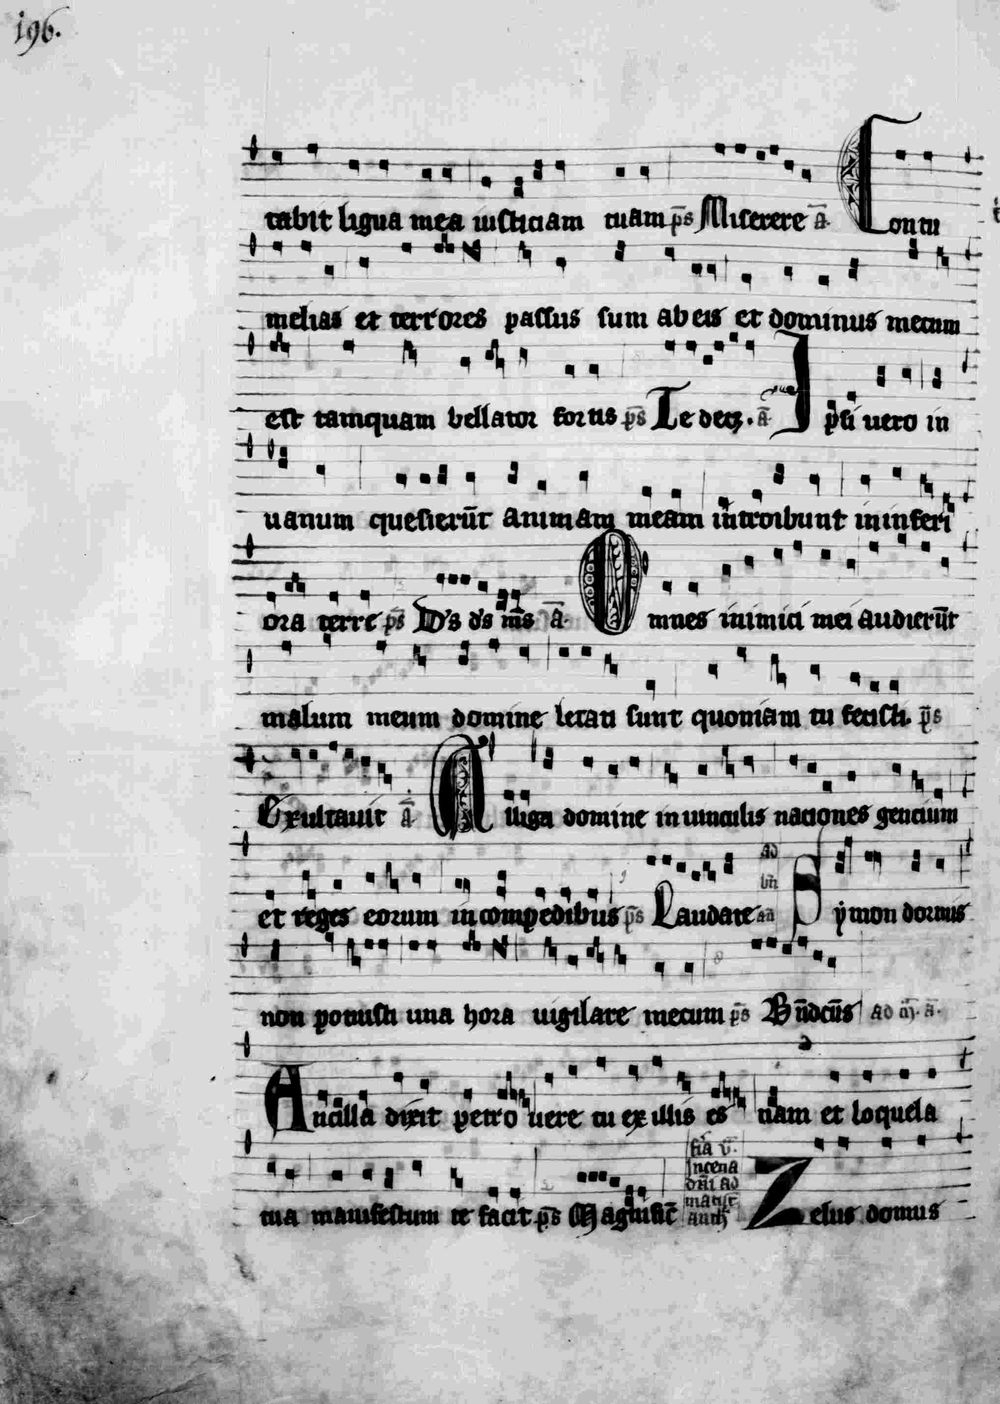 196.
tabit ligua mea iusticiam tuam p̄s Miserere ā Contu
melias et terrores passus sum ab eis et dominus mecum
est tamquam bellator fortis p̄s Te decꝫ. ā Ip̄si uero in
uanum quesierūt animam meam introibunt in inferi
ora terre p̄s D's d's m̄s ā Omnes inimici mei audierūt
malum meum domine letati sunt quoniam tu fecisti. p̄s
Exultauit ā Alliga domine in uinculis naciones gencium
et reges eorum in compedibus p̄s Laudate an̄ ad bn̄ Symon dormis
non potuisti una hora uigilare mecum p̄s Bn̄dcūs ad m̄. ā.
Ancilla dixit petro uere tu ex illis es nam et loquela
tua manifestum te facit p̄s Magnificat̄ fia v̄. In cena dn̄i ad matut̄ anth̄ Zelus domus